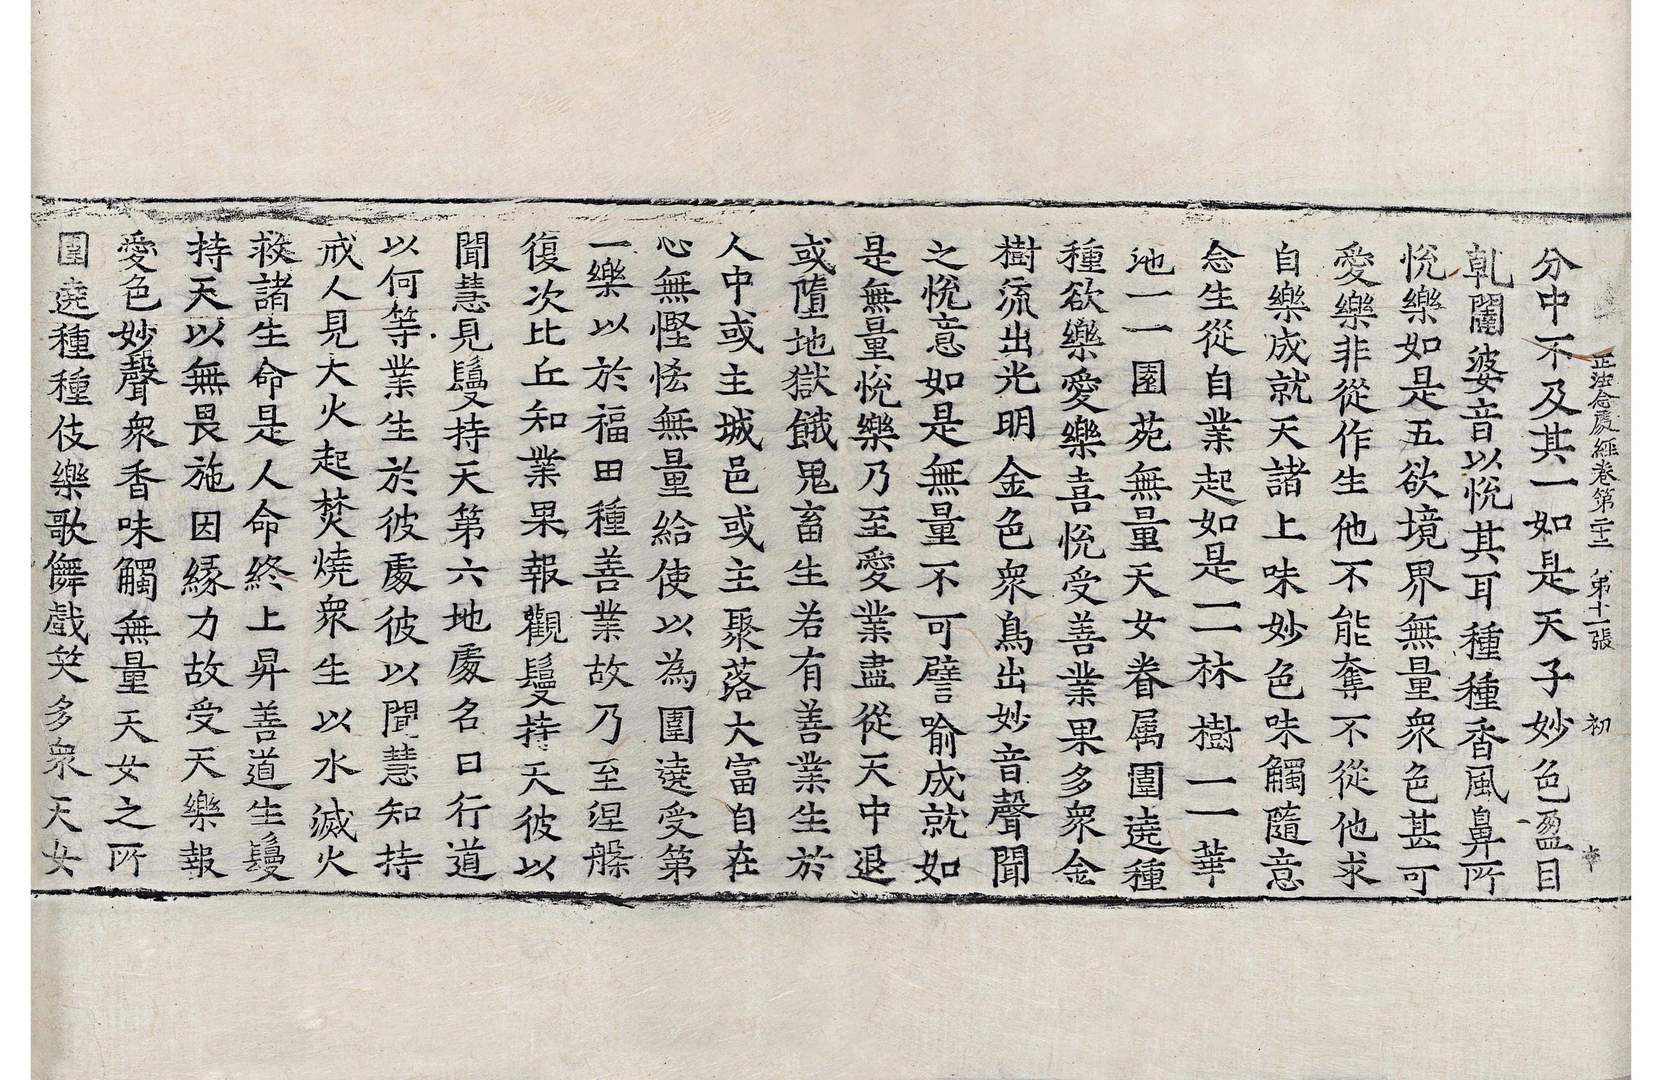 正法念處經卷第二十二 第十一張 初
分中不及其一如是天子妙色盈目
乹闥婆音以悅其耳種種香風鼻所
悅樂如是五欲境界無量衆色甚可
愛樂非從作生他不能奪不從他求
自樂成就天諸上味妙色味觸隨意
念生從自業起如是一一林樹一一華
池一一園苑無量天女眷属圍遶種
種欲樂愛樂喜悅受善業果多衆金
樹流出光明金色衆鳥出妙音聲聞
之悅意如是無量不可譬喻成就如
是無量悅樂乃至愛業盡從天中退
或墮地獄餓鬼畜生若有善業生於
人中或主城邑或主聚落大富自在
心無慳悋無量給使以為圍遶受第
一樂以於福田種善業故乃至涅槃
復次比丘知業果報觀鬘持天彼以
聞慧見鬘持天第六地處名曰行道
以何等業生於彼處彼以聞慧知持
戒人見大火起焚燒衆生以水滅火
救諸生命是人命終上昇善道生鬘
持天以無畏施因緣力故受天樂報
愛色妙聲衆香味觸無量天女之所
圍遶種種伎樂歌儛戲笑多衆天女